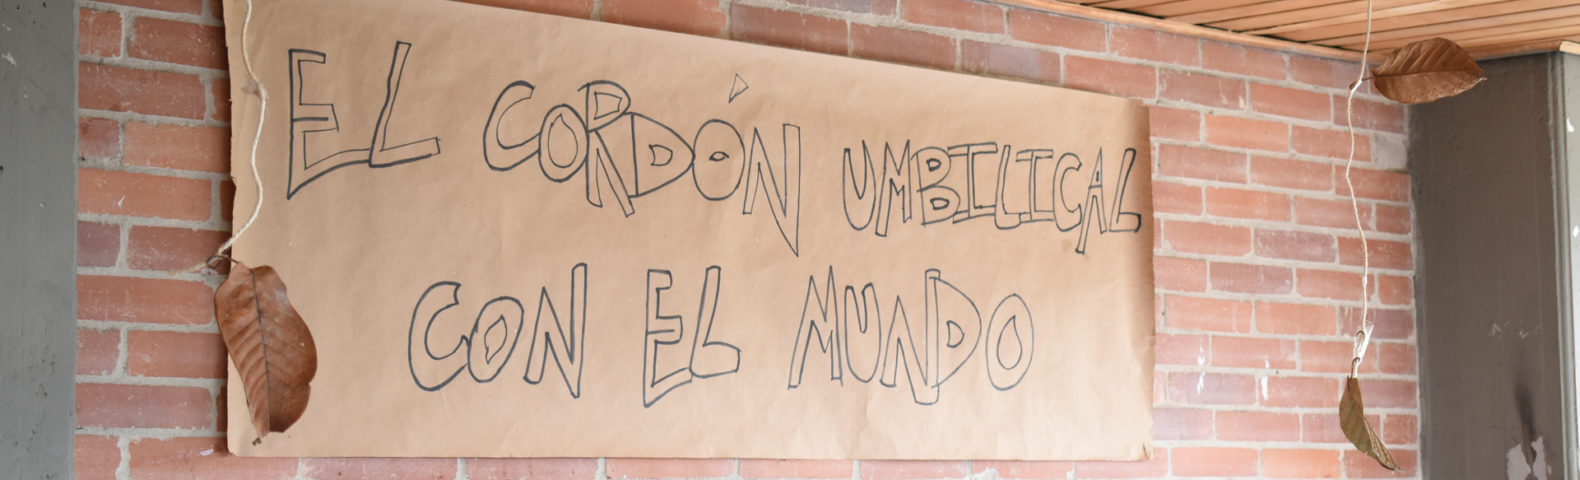 EL CORDÓN UMBILICAL
CON EL MUNDO